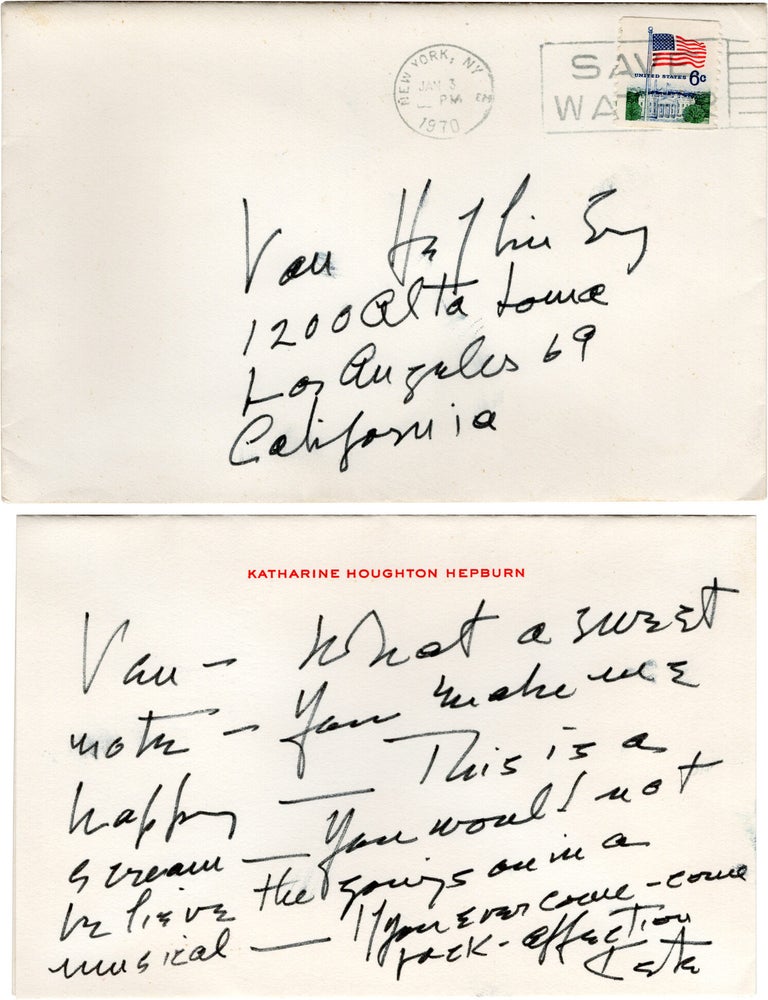 NEW YORK, NY
JAN 3
PM
1970
SAVE
WA
UNITED STATES 6c
Van Heflin Esq
1200 Alta Loma
Los Angeles 69
California
KATHARINE HOUGHTON HEPBURN
Van — What a sweet
note — You make me
happy — This is a
scream — You would not
believe the goings on in a
musical — If you ever come - come
back - affection
Kate